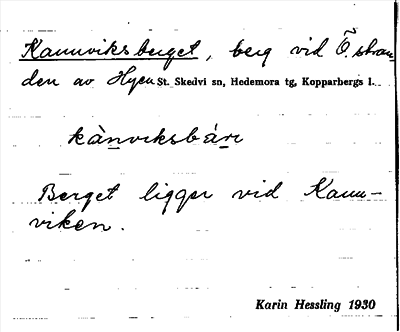 Kannviksberget, berg vid Ö. stran-
den av Hyen St. Skedvi sn, Hedemora tg, Kopparbergs l.
kànviksbári
Berget ligger vid Kann-
viken.
Karin Hessling 1930